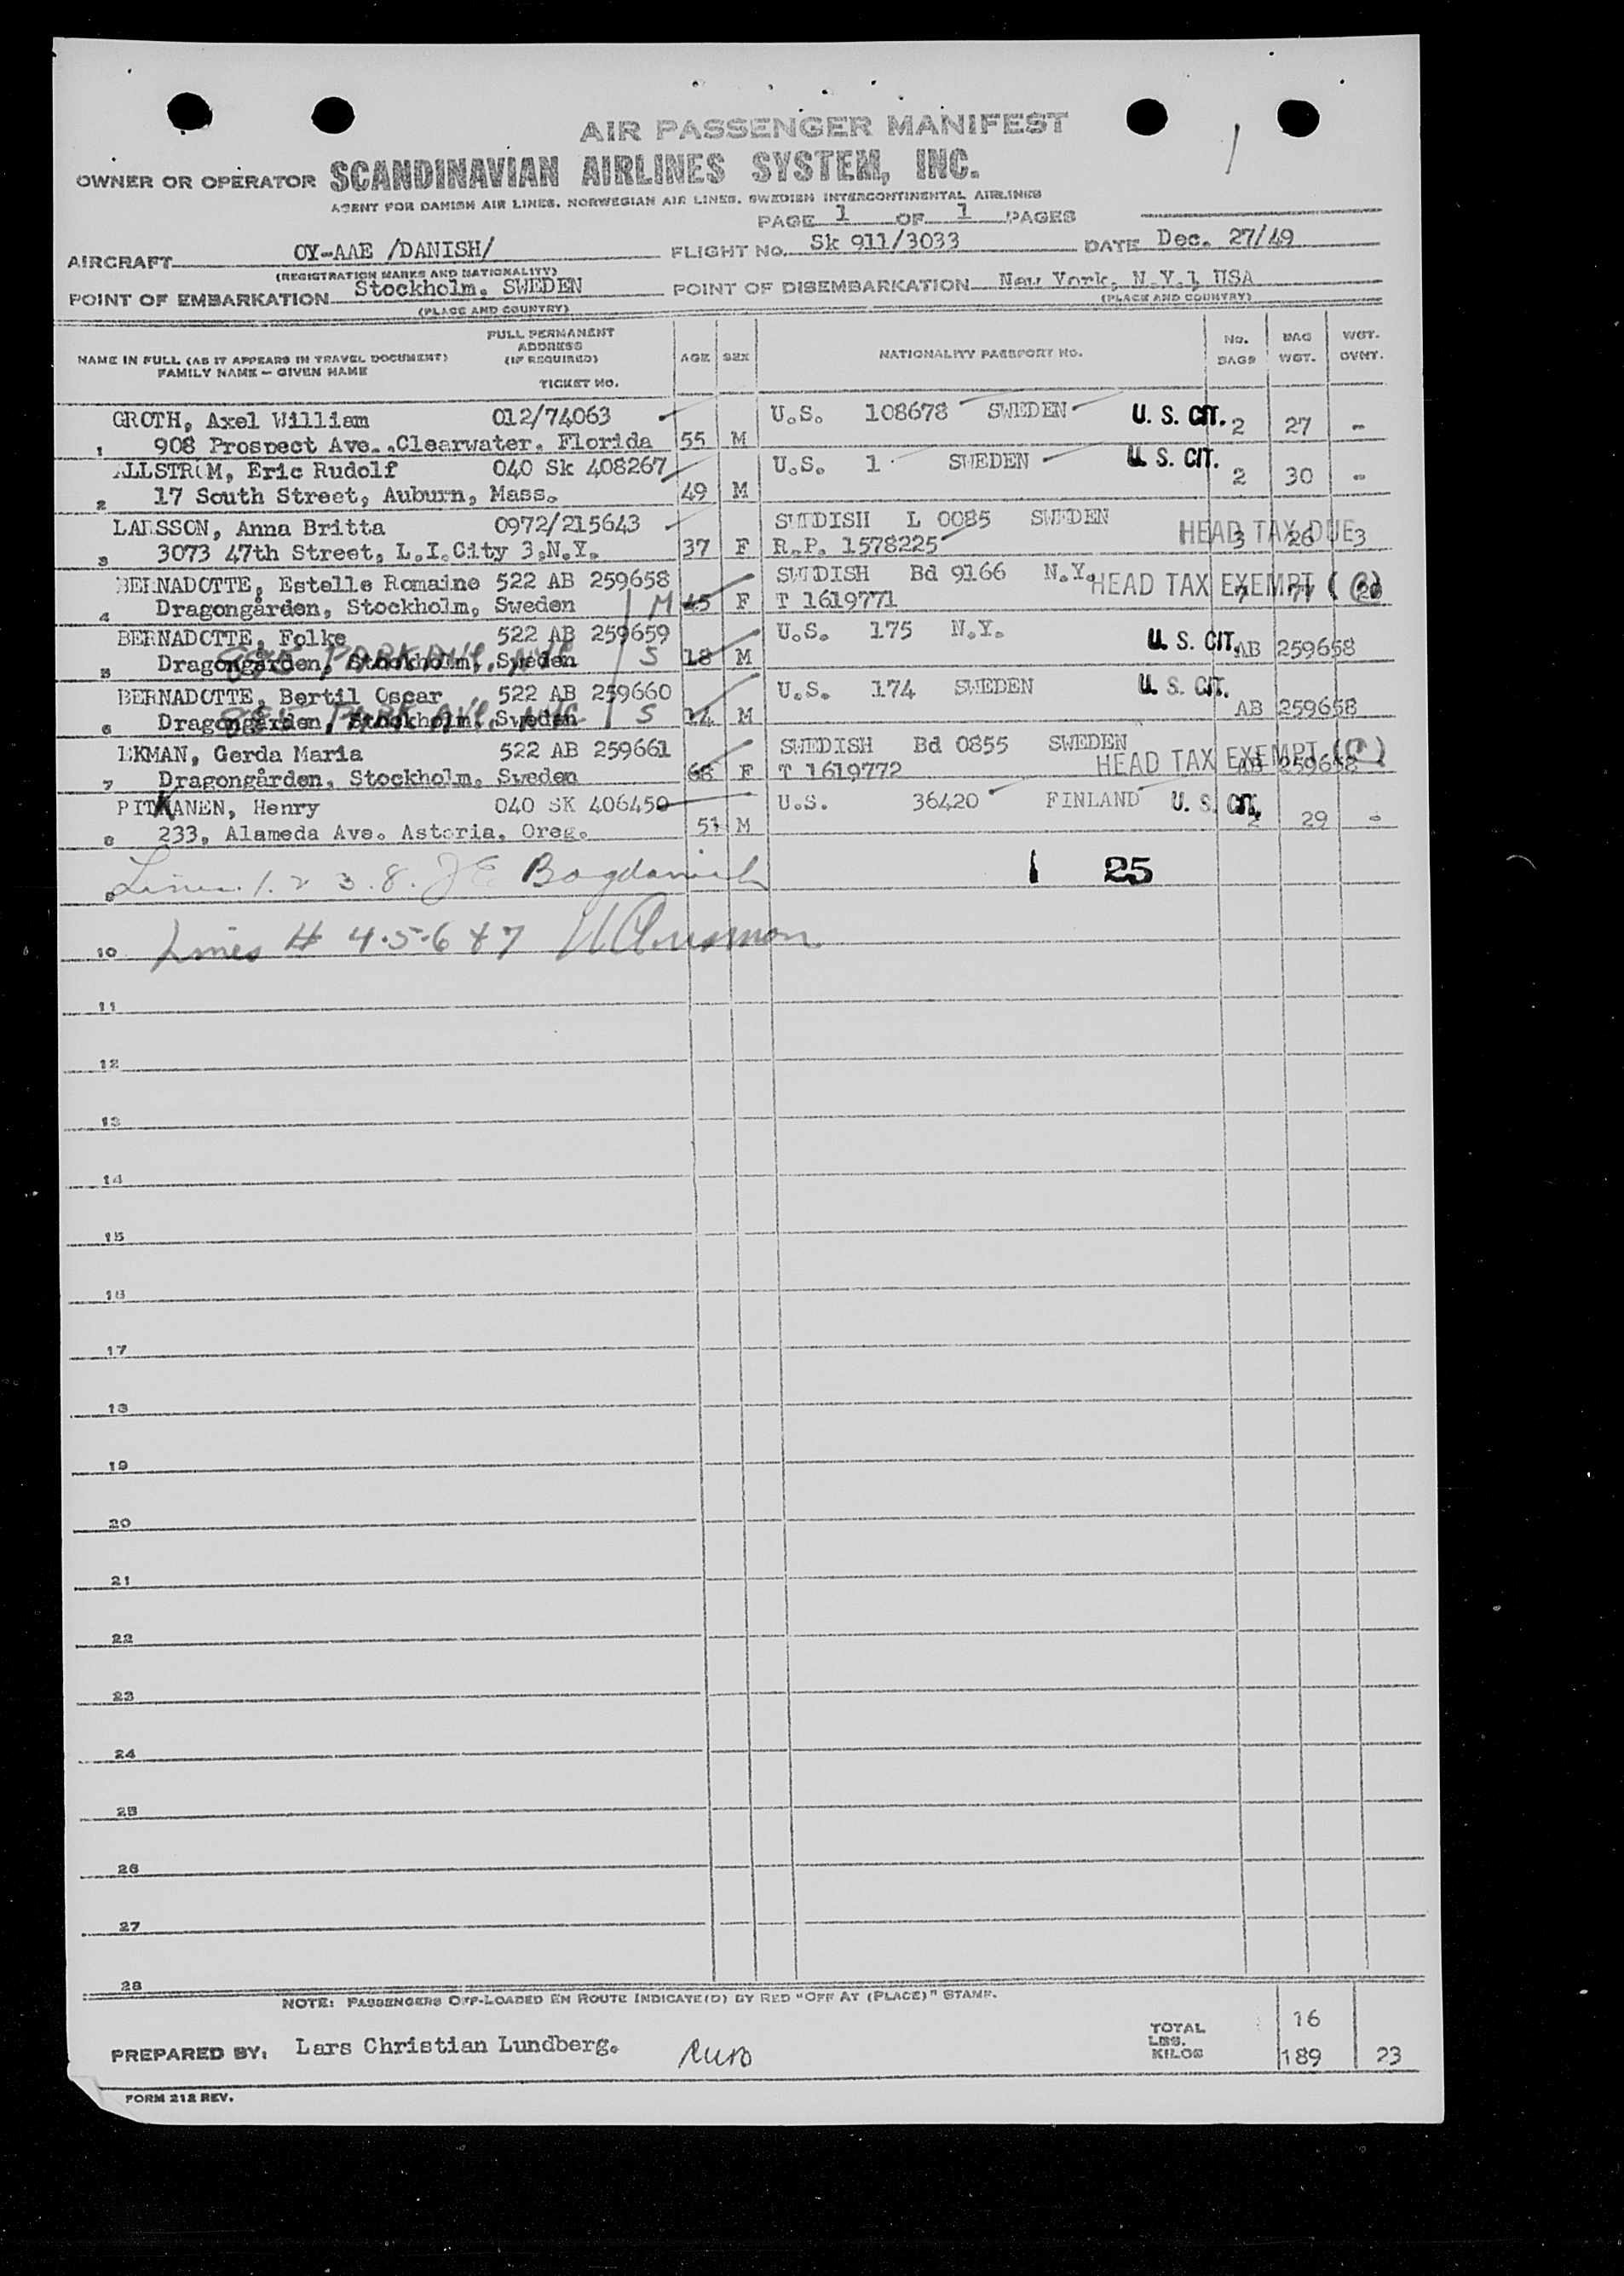 1
AIR PASSENGER MANIFEST
OWNER OR OPERATOR SCANDINAVIAN AIRLINES SYSTEM, INC.
AGENT FOR DANISH AIR LINES. NORWEGIAN AIR LINES. SWEDISH INTERCONTINENTAL AIRLINES
PAGE 1 OF 1 PAGES
AIRCRAFT OY-AAE /DANISH/ FLIGHT NO. Sk 911/3033 DATE Dec. 27/49
(REGISTRATION MARKS AND NATIONALITY)
POINT OF EMBARKATION Stockholm. SWEDEN POINT OF DISEMBARKATION New York, N.Y.1 USA
(PLACE AND COUNTRY) (PLACE AND COUNTRY)
NAME IN FULL (AS IT APPEARS IN TRAVEL DOCUMENT) FULL PERMANENT ADDRESS (IF REQUIRED) AGE SEX NATIONALITY PASSPORT NO. NO. BAGS BAG WGT. WGT. OVHT.
FAMILY NAME — GIVEN NAME TICKET NO.
GROTH, Axel William 012/74063 U.S. 108678 SWEDEN U. S. CIT. 2 27 -
1 908 Prospect Ave.,Clearwater. Florida 55 M
ALLSTROM, Eric Rudolf 040 Sk 408267 U.S. 1 SWEDEN U. S. CIT. 2 30 -
2 17 South Street, Auburn, Mass. 49 M
LARSSON, Anna Britta 0972/215643 SWEDISH L 0085 SWEDEN HEAD TAX DUE
3 3073 47th Street, L.I.City 3.N.Y. 37 F R.P. 1578225 3 26 3
BERNADOTTE, Estelle Romaine 522 AB 259658 SWEDISH Bd 9166 N.Y. HEAD TAX EXEMPT
4 Dragongården, Stockholm, Sweden M 45 F T 1619771 7 77 20
BERNADOTTE, Folke 522 AB 259659 U.S. 175 N.Y. U. S. CIT. AB 259658
5 Dragongården, Stockholm, Sweden PARK AVE, NYC S 18 M
BERNADOTTE, Bertil Oscar 522 AB 259660 U.S. 174 SWEDEN U. S. CIT. AB 259658
6 Dragongården, Stockholm, Sweden PARK AVE, NYC S 14 M
EKMAN, Gerda Maria 522 AB 259661 SWEDISH Bd 0855 SWEDEN HEAD TAX EXEMPT
7 Dragongården, Stockholm, Sweden 68 F T 1619772 AB 259658
PITKANEN, Henry 040 SK 406450 U.S. 36420 FINLAND U. S. CIT. 2 29 -
8 233, Alameda Ave. Astoria, Oreg. 51 M
9 Lines. 1. 2 3. 8. J E Bogdanich 1 25
10 Lines # 4.5.6 & 7
11
12
13
14
15
16
17
18
19
20
21
22
23
24
25
26
27
28
NOTE: PASSENGERS OFF-LOADED EN ROUTE INDICATE(D) BY RED "OFF AT (PLACE)" STAMP.
PREPARED BY: Lars Christian Lundberg.
TOTAL 16
LBS.
KILOS 189 23
FORM 212 REV.